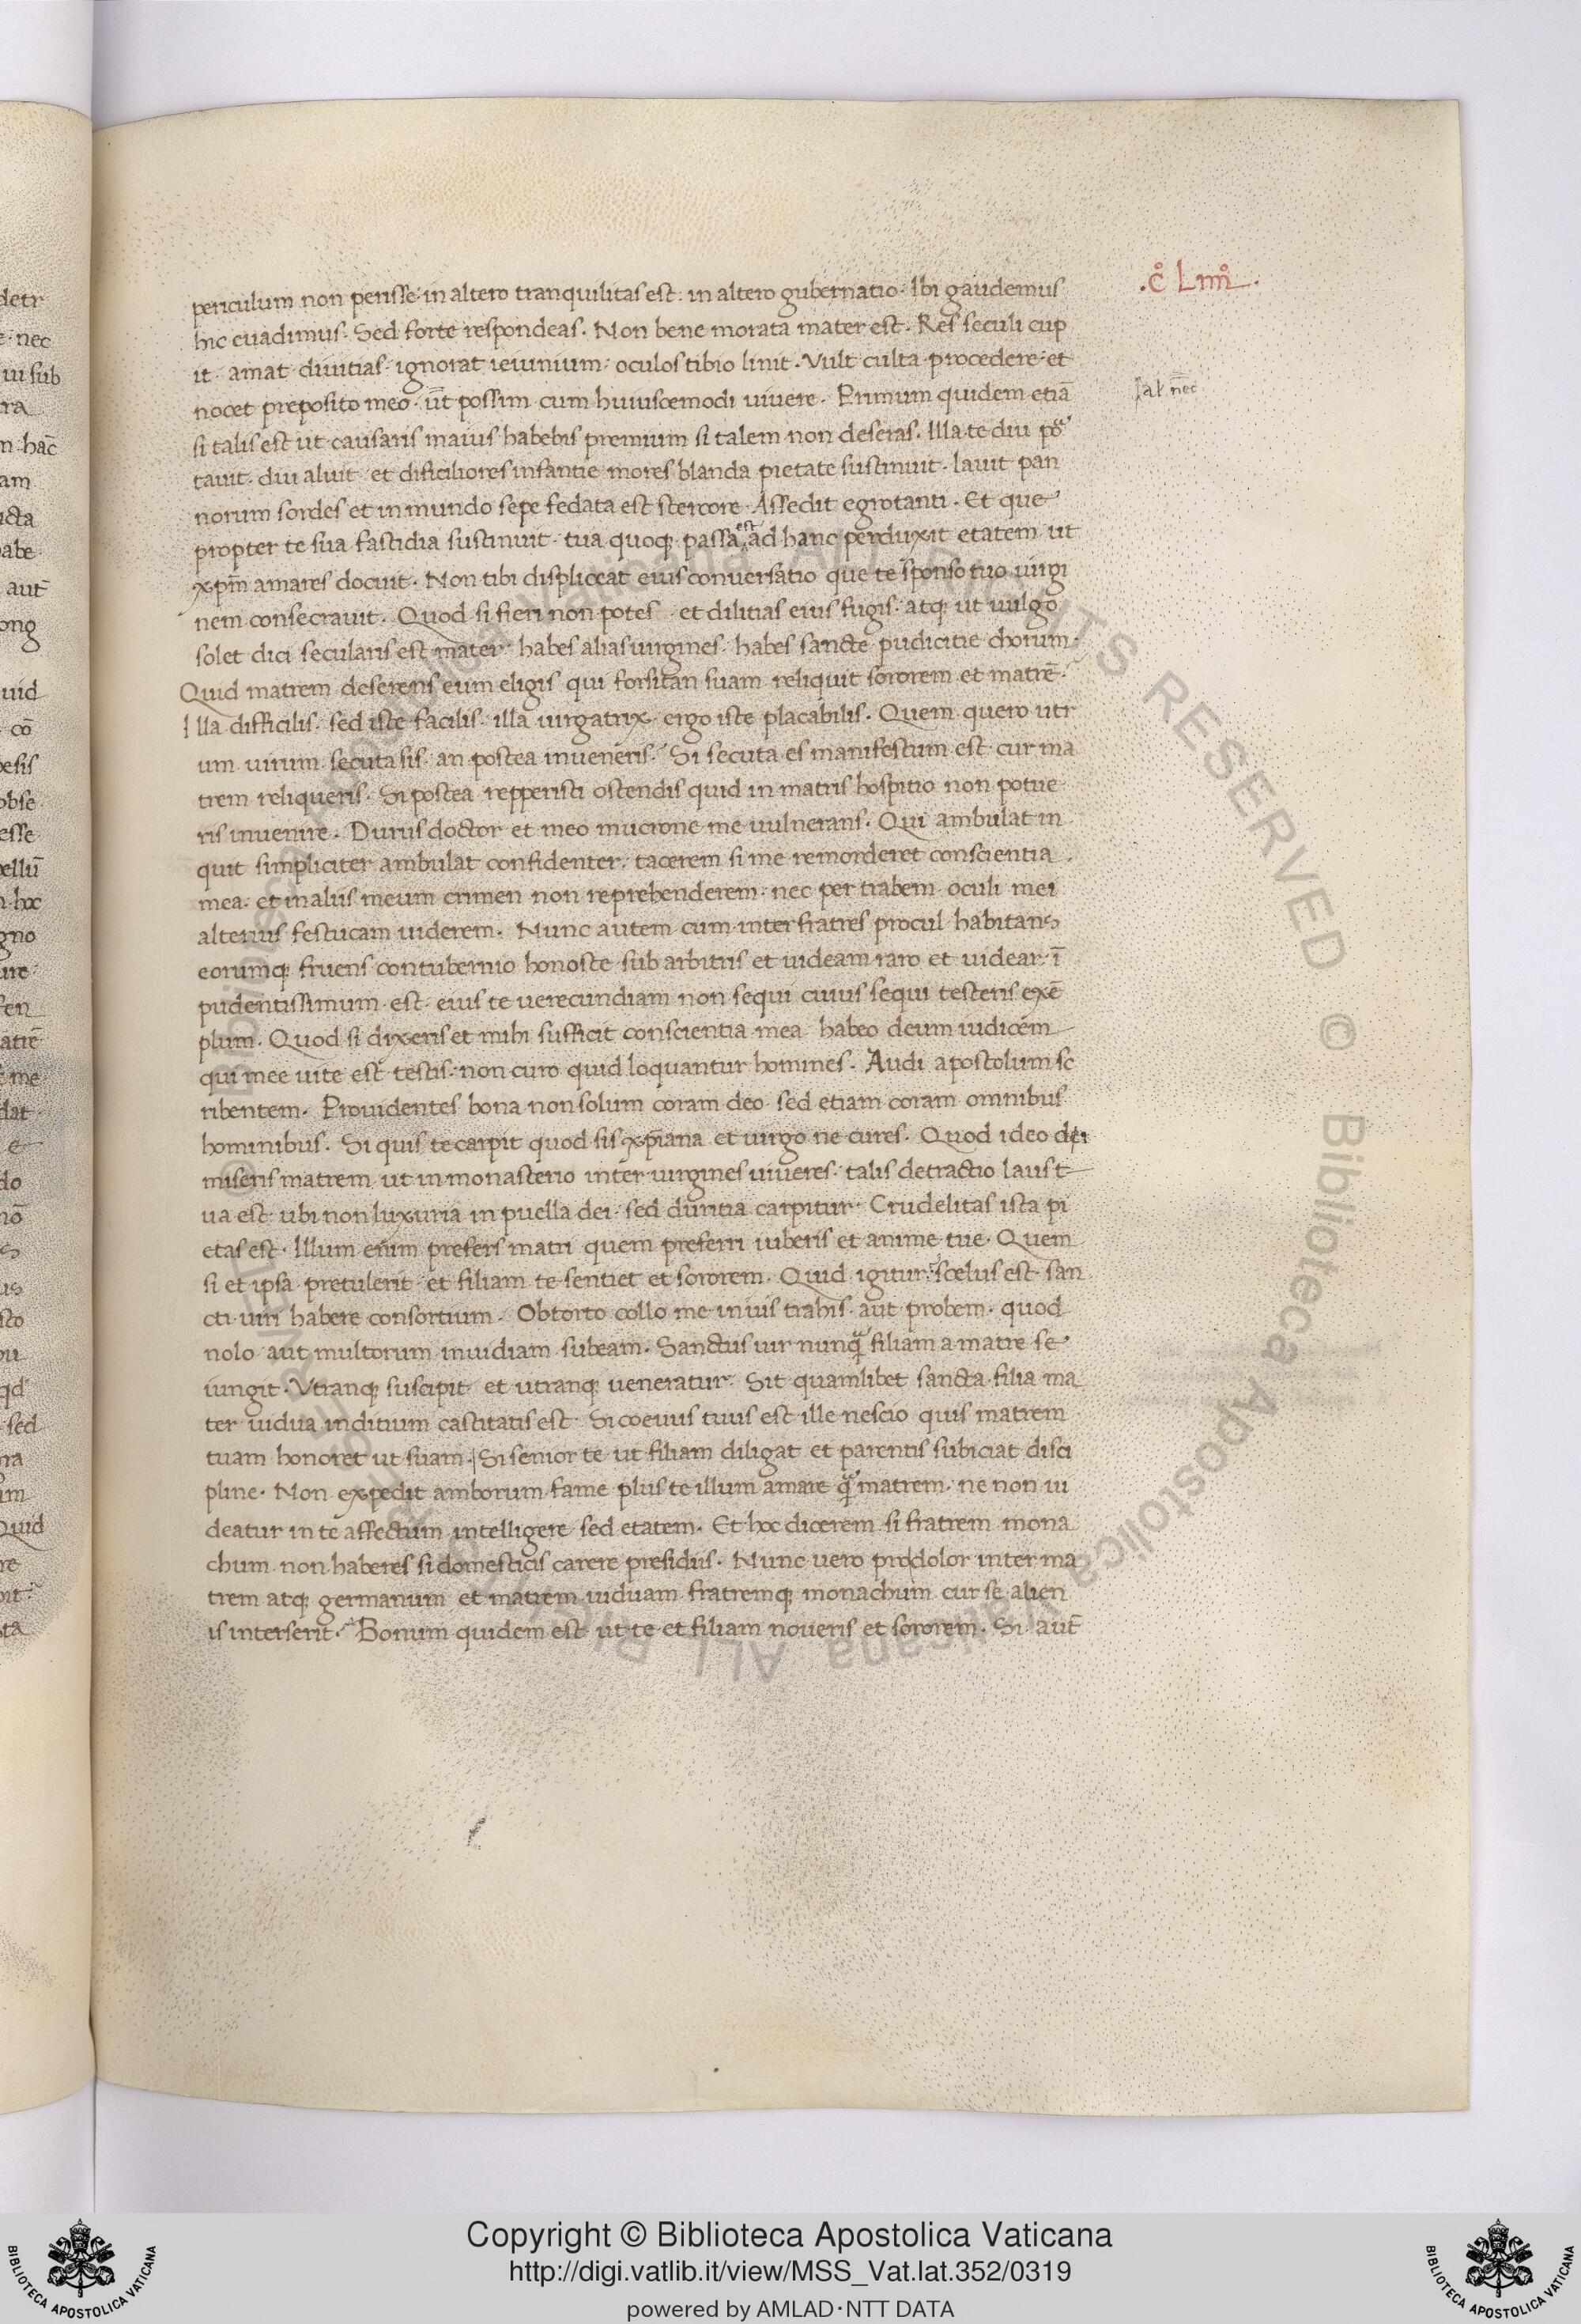 .c̊ Lııı̊ı.
periculum non perisse· in altero tranquilitas est· in altero gubernatio· Ibi gaudemus
hic euadimus· Sed forte respondeas· Non bene morata mater est· Res seculi cup
it· amat diuitias· ignorat ieiunium· oculos tibio linit· Vult culta procedere· et
nocet preposito meo· ut̄ possim cum huiuscemodi uiuere· Primum quidem etiā
al' n̄ec
si talis est ut causaris maius habebis premium si talem non deseras· Illa te diu por
tauit· diu aluit· et dificiliores infantie mores blanda pietate sustinuit· lauit pan
norum sordes et inmundo sepe fedata est stercore· Assedit egrotanti· Et que
propter te sua fastidia sustinuit· tua quoq; passa est ad hanc perduxit etatem ut
xp̄m amares docuit· Non tibi displiceat eius conuersatio que te sponso tuo uirgi
nem consecrauit· Quod si fieri non potes et dilitias eius fugis· atq; ut uulgo
solet dici secularis est mater· habes alias uirgines· habes sancte pudicitie chorum·
Quid matrem deserens eum eligis qui forsitan suam reliquit sororem et matrē·
Illa difficilis· sed iste facilis· illa uirgatrix· ergo iste placabilis· Quem quero utr
um uirum secuta sis· an postea inueneris· Si secuta es manifestum est cur ma
trem reliqueris· Si postea repperisti ostendis quid in matris hospitio non potue
ris inuenire· Durus doctor et meo mucrone me uulnerans· Qui ambulat in
quit simpliciter ambulat confidenter· tacerem si me remorderet conscientia
mea· et in aliis meum crimen non reprehenderem· nec per trabem oculi mei
alterius festucam uiderem· Nunc autem cum inter fratres procul habitans
eorumq; fruens contubernio honoste sub arbitris et uideam raro et uidear· ī
pudentissimum est eius te uerecundiam non sequi cuius sequi testeris exē
plum· Quod si dixeris et mihi sufficit conscientia mea habeo deum iudicem
qui mee uite est testis· non curo quid loquantur homines· Audi apostolum sc
ribentem· Prouidentes bona non solum coram deo sed etiam coram omnibus
hominibus· Si quis te carpit quod sis xp̄iana et uirgo ne cures· Quod ideo dei
miseris matrem ut in monasterio inter uirgines uiueres· talis detractio laus t
ua est· ubi non luxuria in puella dei· sed duritia carpitur· Crudelitas ista pi
etas est· Illum enim prefers matri quem preferri iuberis et anime tue· Quem
si et ipsa pretulerit et filiam te sentiet et sororem· Quid igitur· scelus est san
cti uiri habere consortium· Obtorto collo me in ius trahis· aut probem· quod
nolo aut multorum inuidiam subeam· Sanctus uir nunq̄ filiam a matre se
iungit· Vtranq; suscipit et utranq; ueneratur· Sit quamlibet sancta filia ma
ter uidua inditium castitatis est· Si coeuus tuus est ille nescio quis matrem
tuam honoret ut suam· Si senior te ut filiam diligat et parentis subiciat disci
pline· Non expedit amborum fame plus te illum amare q̄ matrem· ne non ui
deatur in te affectum intelligere sed etatem· Et hoc dicerem si fratrem mona
chum non haberes si domesticis carere presidiis· Nunc uero prodolor inter ma
trem atq; germanum et matrem uiduam fratremq; monachum cur se alien
is interserit· Bonum quidem est ut te et filiam noueris et sororem· Si aut̄
Copyright © Biblioteca Apostolica Vaticana
http://digi.vatlib.it/view/MSS_Vat.lat.352/0319
powered by AMLAD·NTT DATA
BIBLIOTECA APOSTOLICA VATICANA
BIBLIOTECA APOSTOLICA VATICANA